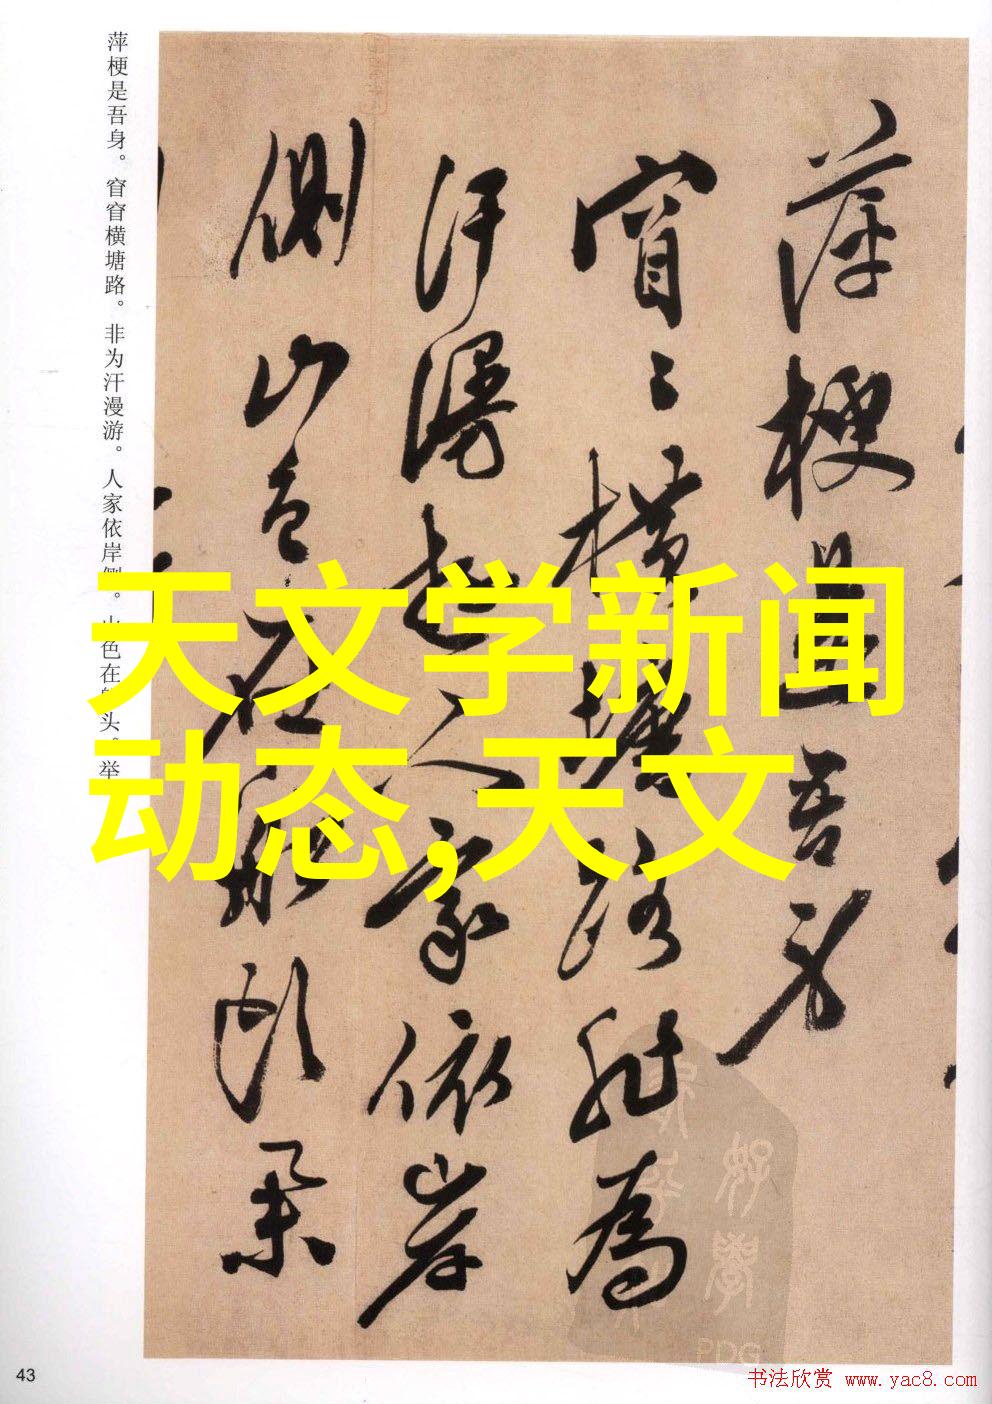 萍梗是吾身
窅〻横塘路非為
汗漫遊人家依岸
側山色在船頭
萍梗是吾身。窅窅横塘路。非为汗漫游。人家依岸侧。山色在船头。举
天文学新闻
动态,天文
好學
PDG
43
书法欣赏 www.yac8.com